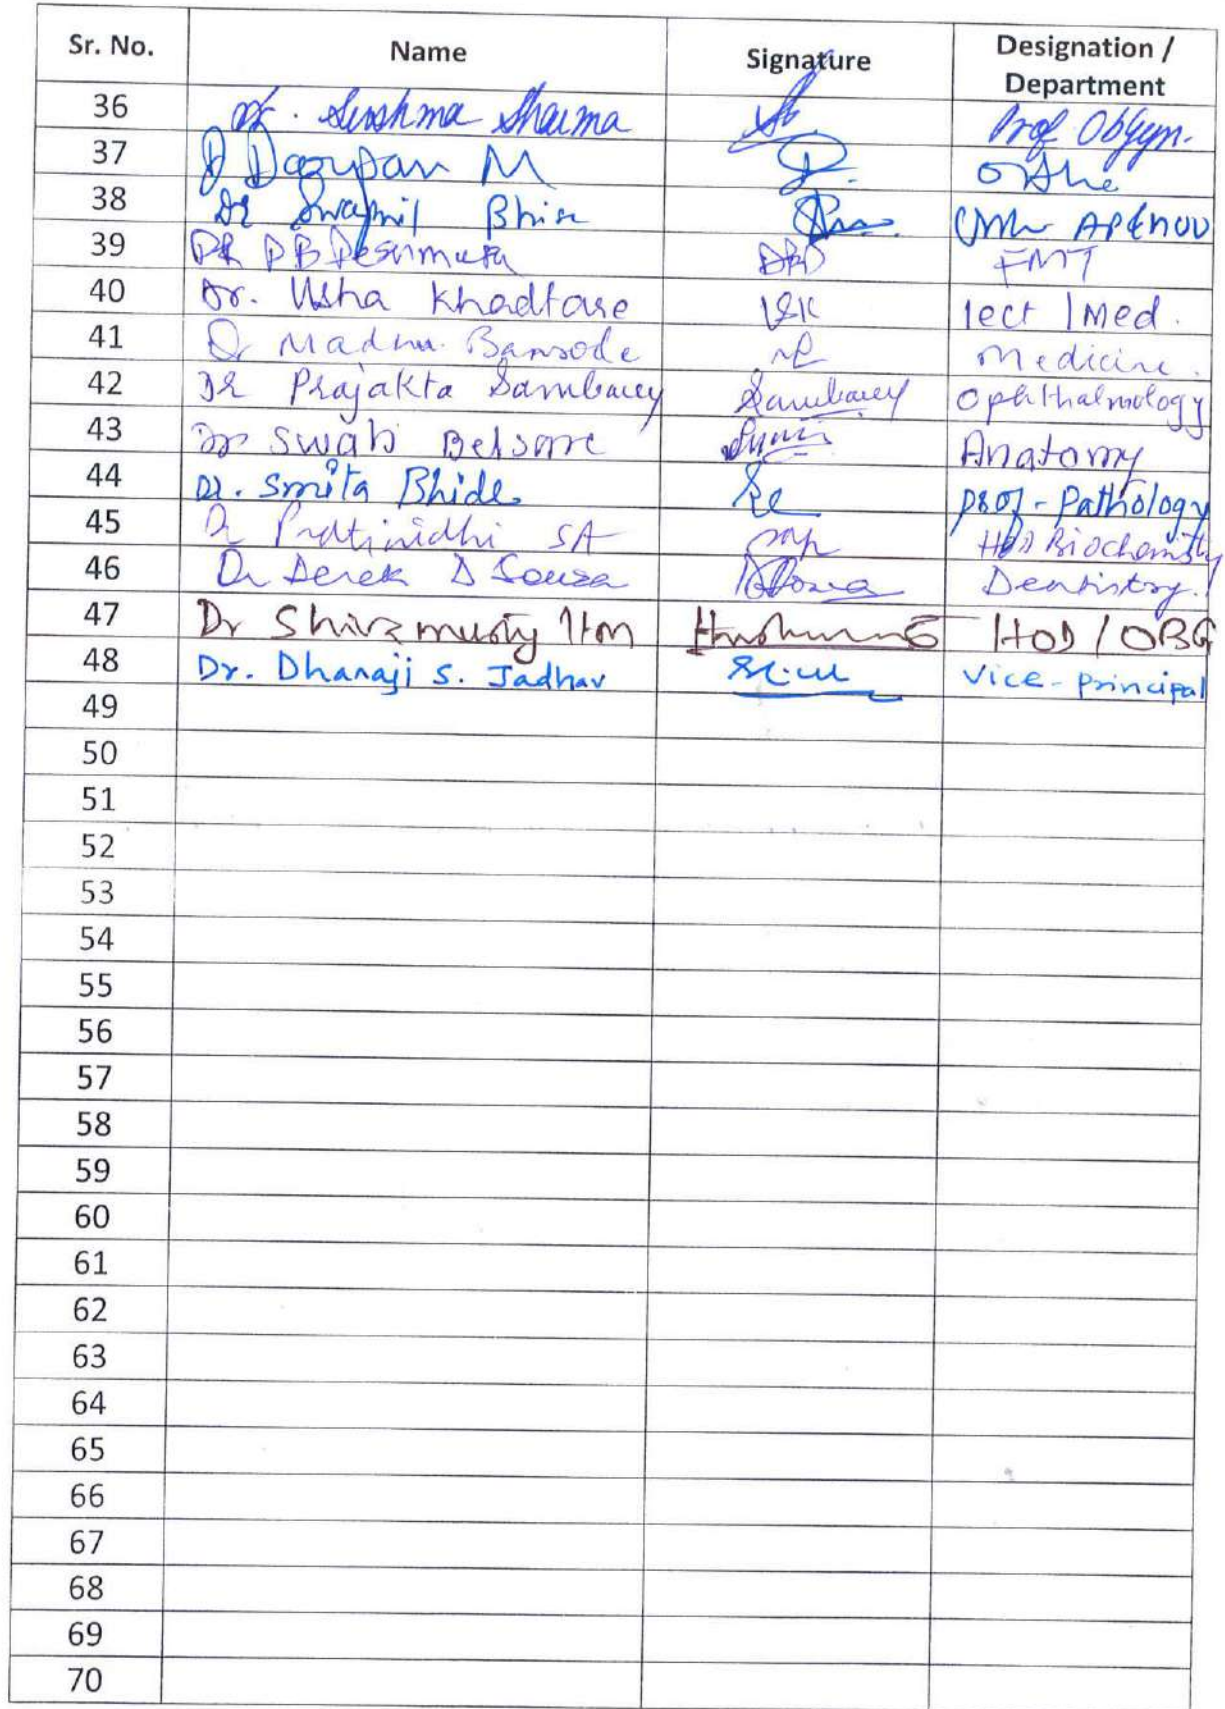 Sr. No. Name Signature Designation / Department
36 Dr. Sushma Sharma Prof ObGyn.
37 D Darpan M Ortho
38 Dr Swapnil Bhise
39 DR PB Deshmukh FMT
40 Dr. Usha Khadtare UK lect / Med.
41 Dr Madhu. Bansode Medicine.
42 Dr Prajakta Sambarey Sambarey Ophthalmology
43 Dr Swati Belsare Anatomy
44 Dr. Smita Bhide Prof - Pathology
45 Dr Pratinidhi SA HOD Biochemistry
46 Dr Derek D Souza Dentistry.
47 Dr Shivamurty HM HOD / OBG
48 Dr. Dhanaji S. Jadhav Vice-principal
49
50
51
52
53
54
55
56
57
58
59
60
61
62
63
64
65
66
67
68
69
70